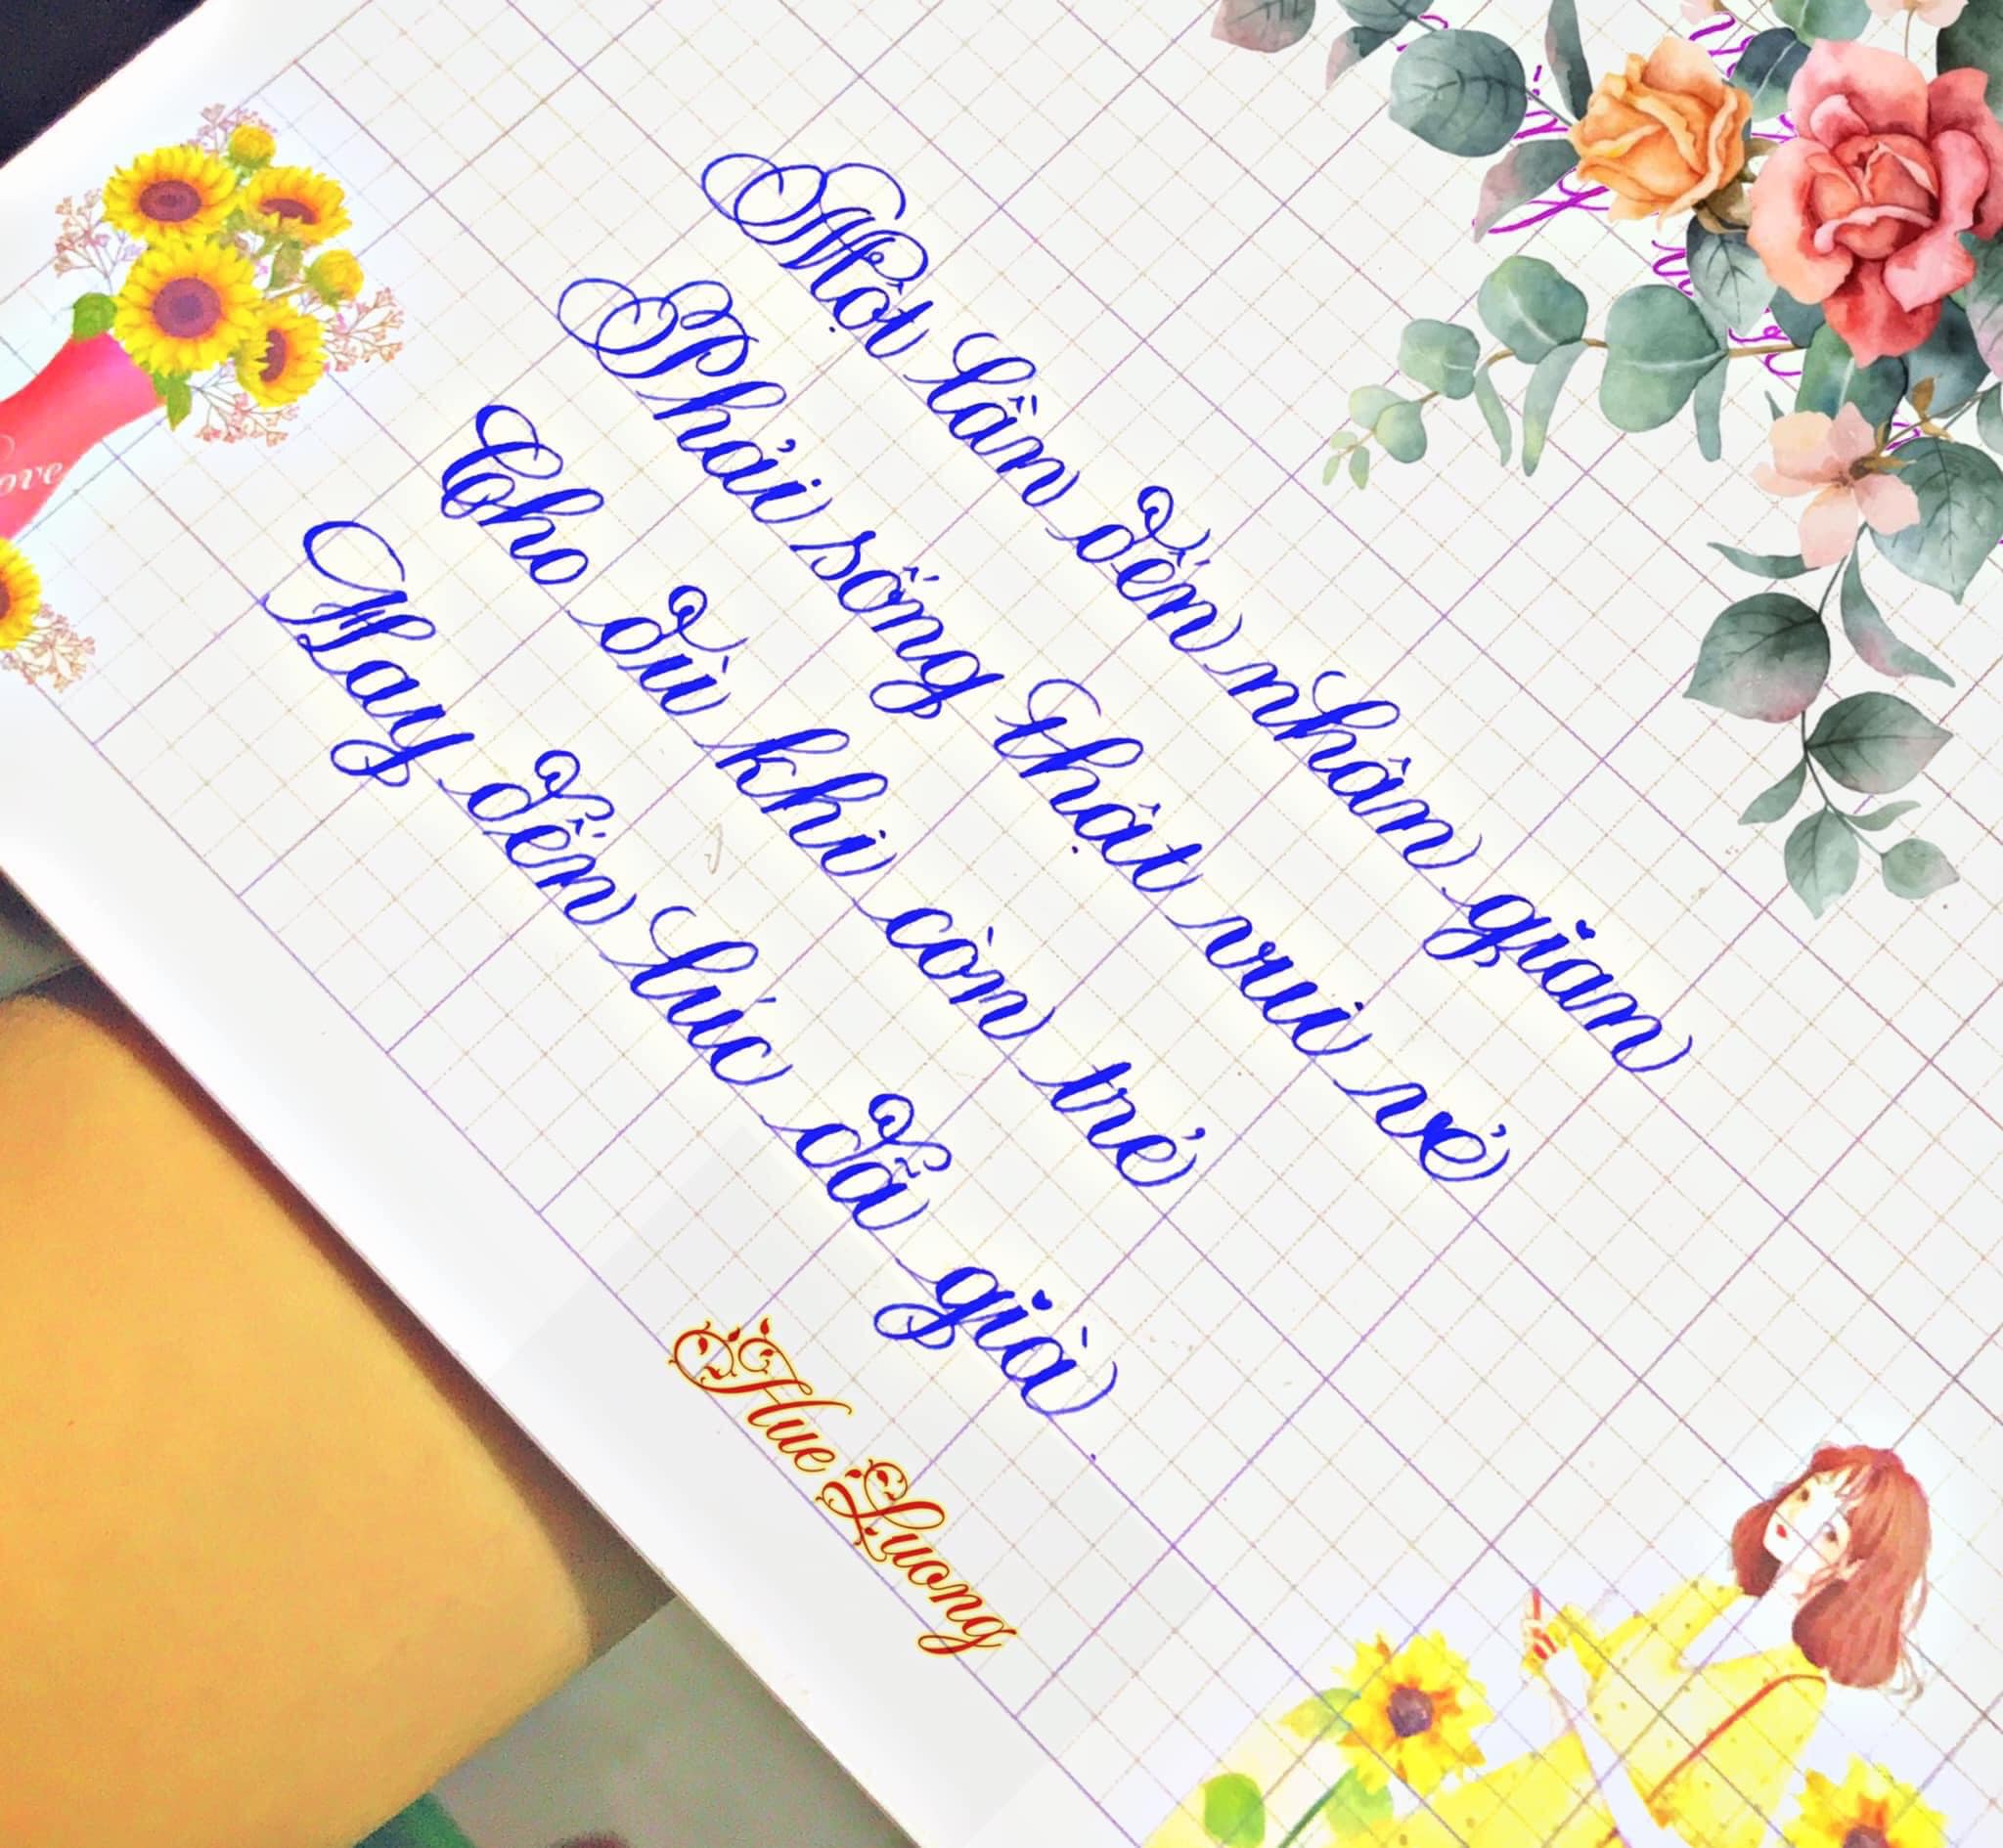 Một lần đến nhân gian
Phải sống thật vui vẻ
Cho dù khi còn trẻ
Hay đến lúc đã già
Hue Luong